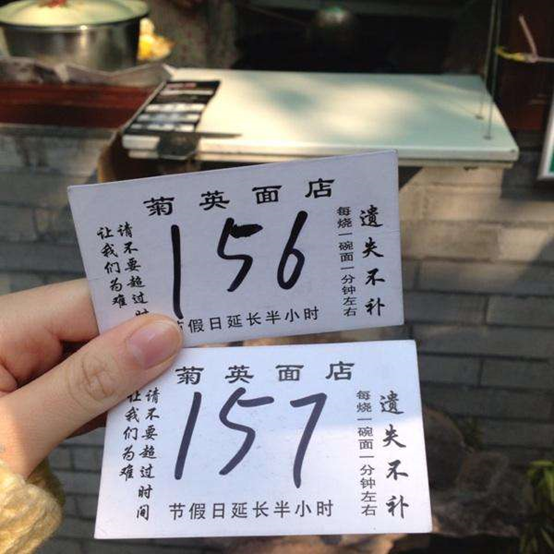 菊英面店
请不要超过时
让我们为难
156
每烧一碗面一分钟左右
遗失不补
节假日延长半小时
菊英面店
请不要超过时间
让我们为难
157
每烧一碗面一分钟左右
遗失不补
节假日延长半小时